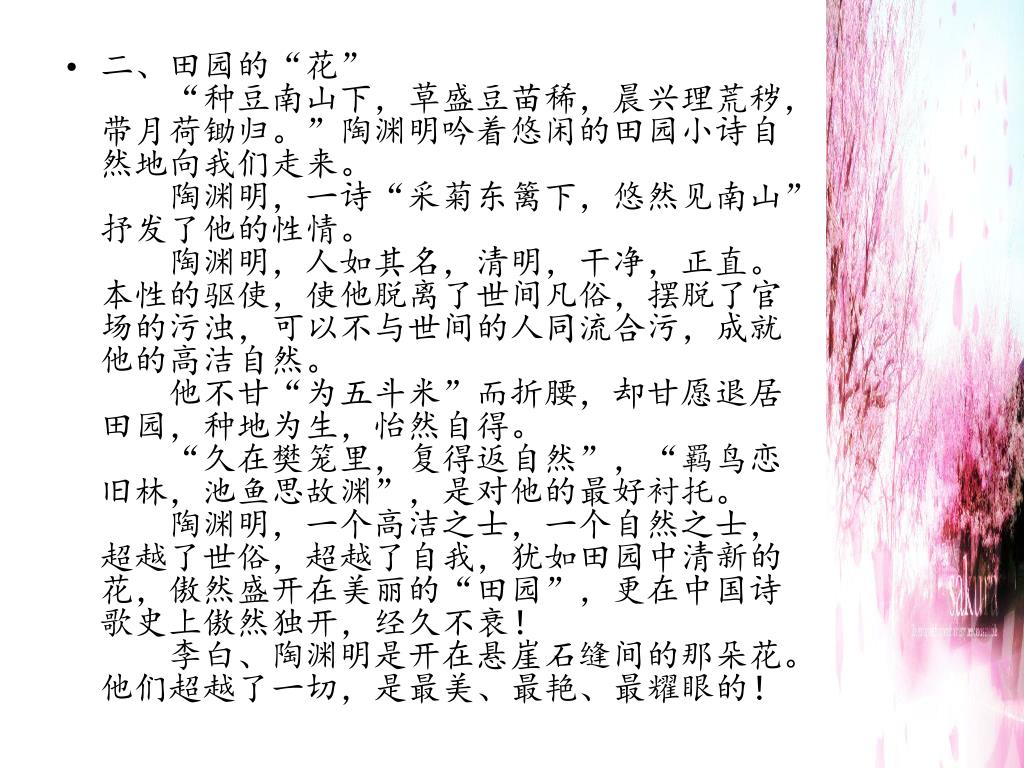 • 二、田园的“花”
“种豆南山下，草盛豆苗稀，晨兴理荒秽，
带月荷锄归。”陶渊明吟着悠闲的田园小诗自
然地向我们走来。
陶渊明，一诗“采菊东篱下，悠然见南山”
抒发了他的性情。
陶渊明，人如其名，清明，干净，正直。
本性的驱使，使他脱离了世间凡俗，摆脱了官
场的污浊，可以不与世间的人同流合污，成就
他的高洁自然。
他不甘“为五斗米”而折腰，却甘愿退居
田园，种地为生，怡然自得。
“久在樊笼里，复得返自然”，“羁鸟恋
旧林，池鱼思故渊”，是对他的最好衬托。
陶渊明，一个高洁之士，一个自然之士，
超越了世俗，超越了自我，犹如田园中清新的
花，傲然盛开在美丽的“田园”，更在中国诗
歌史上傲然独开，经久不衰！
李白、陶渊明是开在悬崖石缝间的那朵花。
他们超越了一切，是最美、最艳、最耀眼的！
sakura